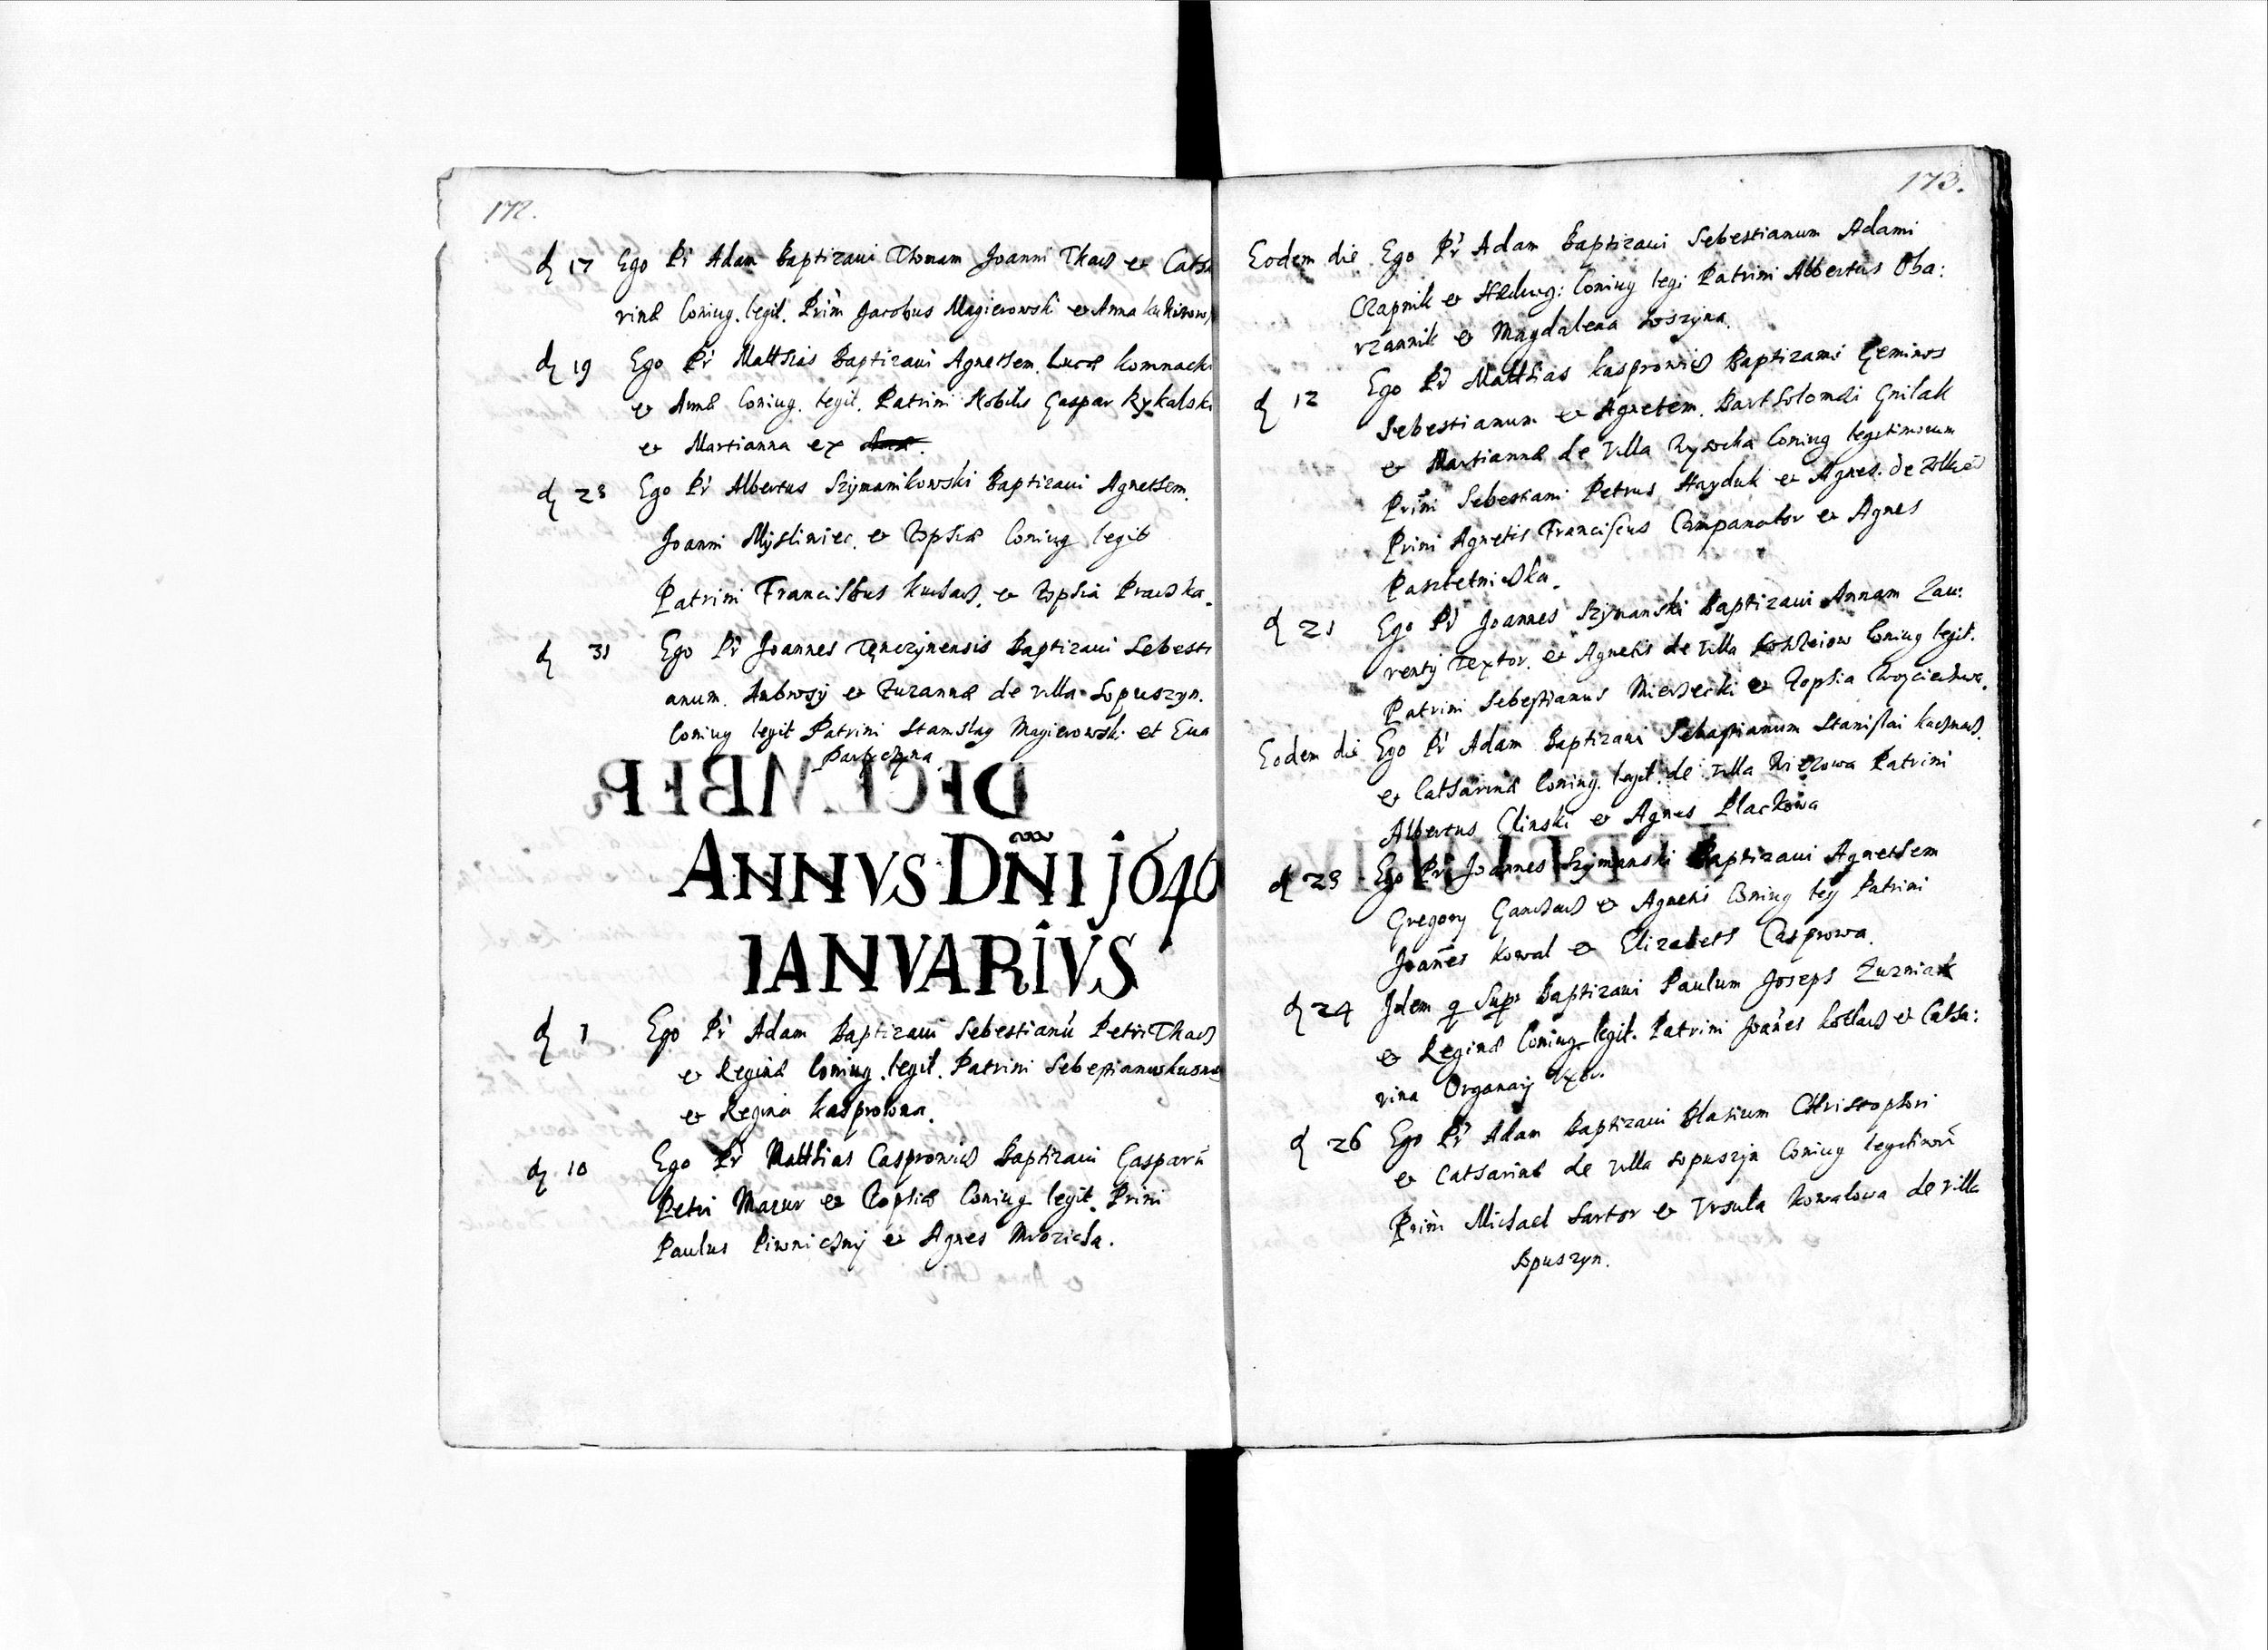 172.
d 17 Ego Pr Adam Baptizaui Thomam Joanni Thacz et Catha
rinæ Coniug. legit. Prini Jacobus Magierowski et Anna
d 19 Ego Pr Matthias Baptizaui Agnethem. Lucæ Komnacki
et Annæ Coniug. legit. Patrini Nobilis Gaspar Rykalski
et Martianna ex
d 23 Ego Pr Albertus Szymanikowski Baptizaui Agnethem.
Joanni Mysliwiec. et Zophiæ Coniug legit
Patrini Franciscus Kuchacz. et Zophia Praczka.
d 31 Ego Pr Joannes Tęnczynensis Baptizaui Sebesti
anum. Ambrosy et Zuzannæ de villa Lopuszyn.
Coniug legit Patrini Stanislay Magierowski et Eua
DECEMBER
ANNVS DÑI j646
IANVARIVS
d 7 Ego Pr Adam Baptizaui Sebestianũ Petri Thacz
et Reginæ Coniug. legit. Patrini Sebestianus
et Regina Kasprowna.
d 10 Ego Pr Matthias Casprowicz Baptizaui Gasparũ
Petri Mazur et Zophiæ Coniug legit. Prini
Paulus Piwniczny et Agnes Mrozicha.
173.
Eodem die Ego Pr Adam Baptizaui Sebestianum Adami
Czapnik et Hedwig: Coniug legi Patrini Albertus Oba:
rzannik et Magdalena Loszyna.
d 12 Ego Pr Matthias Kasprowicz Baptizaui Geminos
Sebestianum et Agnetem. Bartholomæi Gnilak
et Martiannæ de Villa Wysoka Coniug legitimorum
Prini Sebestiani Petrus Hayduk et Agnes. de
Prini Agnetis Franciscus Campanator et Agnes
Pasztetniczka.
d 21 Ego Pr Joannes Szymanski Baptizaui Annam Lau:
renty Textor. et Agnetis de Villa Coniug legit.
Patrini Sebestianus Mierzecki et Zophia Woyciechowa.
Eodem die Ego Pr Adam Baptizaui Sebastianum Stanislai Kachmacz.
et Catharinæ Coniug. legit. de villa Patrini
Albertus Glinski et Agnes Plackowa
d 23 Ego Pr Joannes Szymanski Baptizaui Agnethem
Gregory Ganchacz et Agnetis Coniug leg Patrini
Joañes Kowal et Elizabeth Casprowa.
d 24 Idem q Supr Baptizaui Paulum Joseph Zuzniak
et Reginæ Coniug. legit. Patrini Joañes Kollacz et Catha:
rina Organarij Vxor.
d 26 Ego Pr Adam Baptizaui Blasium Christophori
et Catharinæ de villa Lopuszyn Coniug legitimorũ
Prini Michael Sartor et Vrsula Kowalowa de villa
Lopuszyn.